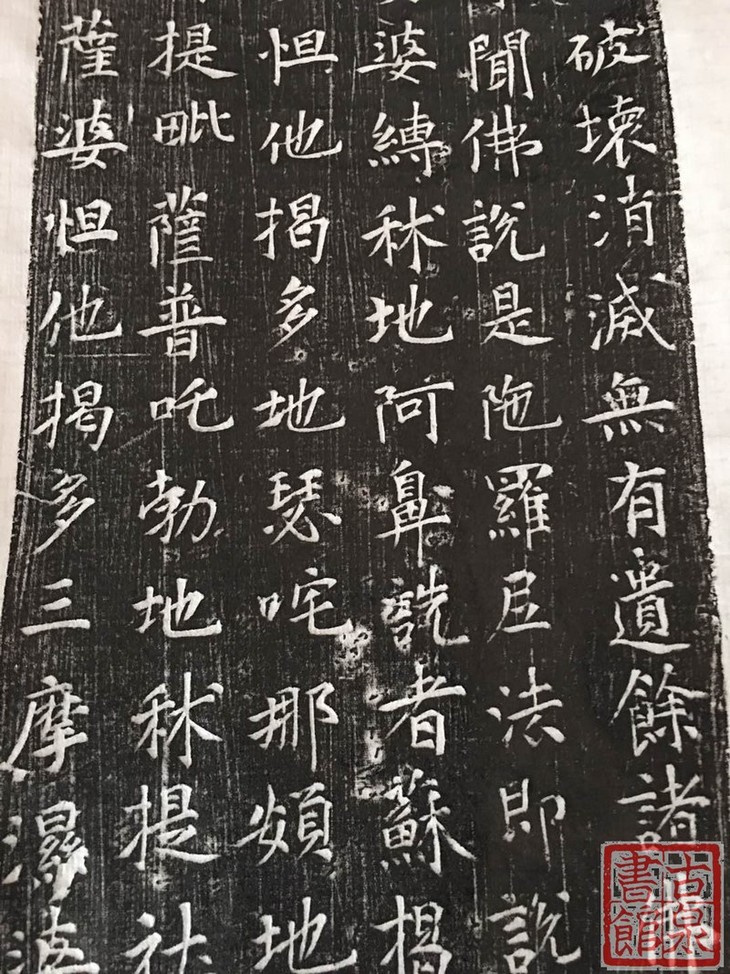 破壞消滅無有遺餘諸
聞佛說是陁羅尼法即說
婆縛秫地阿鼻詵者蘇揭
怛他揭多地瑟咤那頞地
提毗薩普吒勃地秫提社
薩婆怛他揭多三摩濕婆
古泉書館